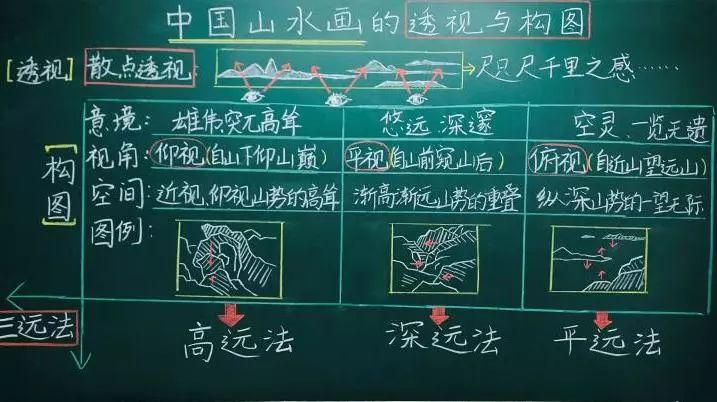 中国山水画的透视与构图
[透视] 散点透视: → 咫尺千里之感……
[构图]
意境: 雄伟突兀高耸 悠远、深邃 空灵、一览无遗
视角: 仰视(自山下仰山巅) 平视(自山前窥山后) 俯视(自近山望远山)
空间: 近视、仰视山势的高耸 渐高渐远山势的重叠 纵深山势的一望无际
图例:
三远法 高远法 深远法 平远法